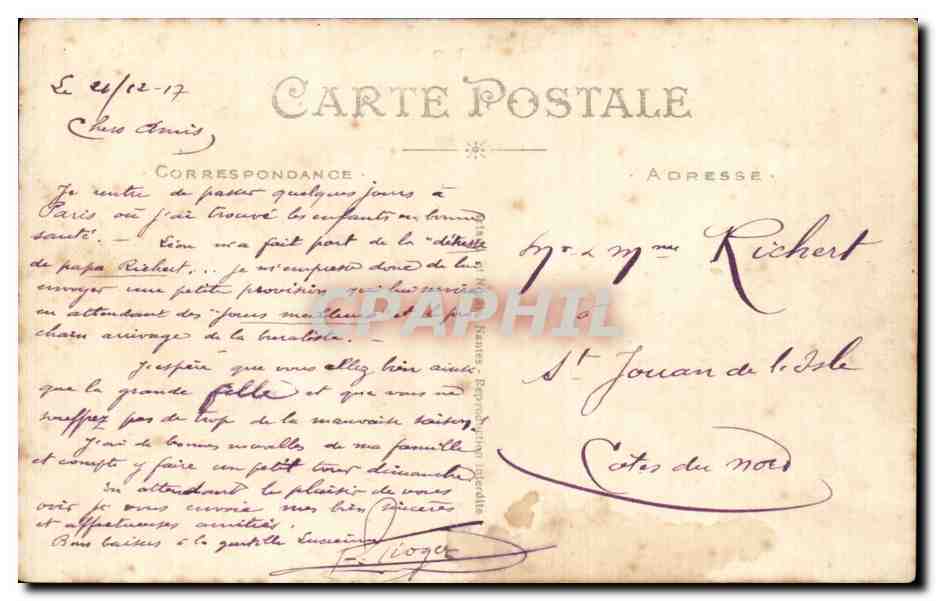 Le 21/12-17
CARTE POSTALE
Chers Amis,
CORRESPONDANCE
ADRESSE
Je rentre de passer quelques jours à
Paris où j'ai trouvé les enfants en bonne
santé. - Léon m'a fait part de la "détresse
de papa Richert... je m'empresse donc de lui
envoyer une petite provision qui lui servira
en attendant des "jours meilleurs et le pro
chain arrivage de la buraliste. -
J'espère que vous allez bien ainsi
que la grande fille et que vous ne
souffrez pas de trop de la mauvaise saison.
J'ai de bonnes nouvelles de ma famille
et compte y faire un petit tour dimanche
En attendant le plaisir de vous
voir je vous envoie mes bien sincères
et affectueuses amitiés.
Bons baisers à la gentille Lucienne
Mr & Mme Richert
à
St Jouan de l'Isle
Côtes du Nord
Nantes - Reproduction Interdite
CPAPHIL